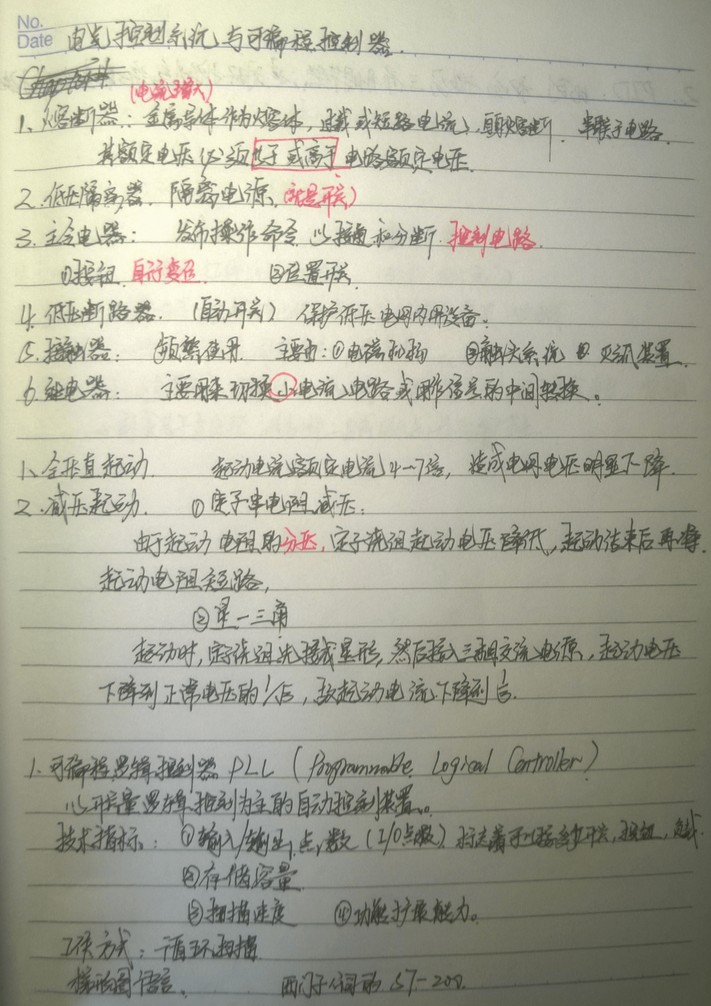 No.
Date 电气控制系统与可编程控制器.
(电流强大)
1、熔断器: 金属导体作为熔体, 过载或短路电流, 熔断. 串联于电路.
其额定电压必须等于或高于电路额定电压.
2. 低压隔离器. 隔离电源. (就是开关)
3. 主令电器: 发布操作命令, 以接通和分断. 控制电路.
①按钮. 自行复位. ②位置开关.
4. 低压断路器. (自动开关) 保护低压电网内用设备.
5. 接触器: 频繁使用. 主要由: ①电磁机构 ②触头系统 ③灭弧装置.
6. 继电器: 主要用来切换小电流电路或用作信号的中间转换。
1、全压直起动. 起动电流额定电流4-7倍, 造成电网电压明显下降.
2. 减压起动. ①定子串电阻减压:
由于起动电阻的分压, 定子绕组起动电压降低, 起动结束后再将
起动电阻短路,
②星-三角
起动时, 定子绕组先接成星形, 然后接入三相交流电源, 起动电压
下降到正常电压的1/√3, 故起动电流下降到1/3.
1. 可编程逻辑控制器 PLC (Programmable Logical Controller)
以开关量逻辑控制为主的自动控制装置.
技术指标: ①输入/输出点数 (I/O点数) 标志着可以接多少开关, 按钮,
②存储容量
③扫描速度 ④功能扩展能力。
工作方式: 循环扫描
梯形图语言. 西门子公司的 S7-200.